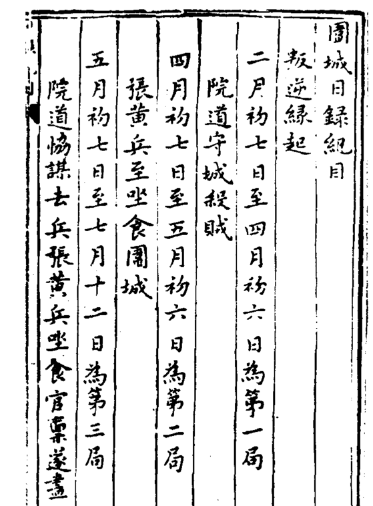 圍城日録紀目
叛逆縁起
二月初七日至四月初六日為第一局
院道守城綏賊
四月初七日至五月初六日為第二局
張黄兵至坐食圍城
五月初七日至七月十二日為第三局
院道協謀去兵張黄兵坐食官稟遂盡